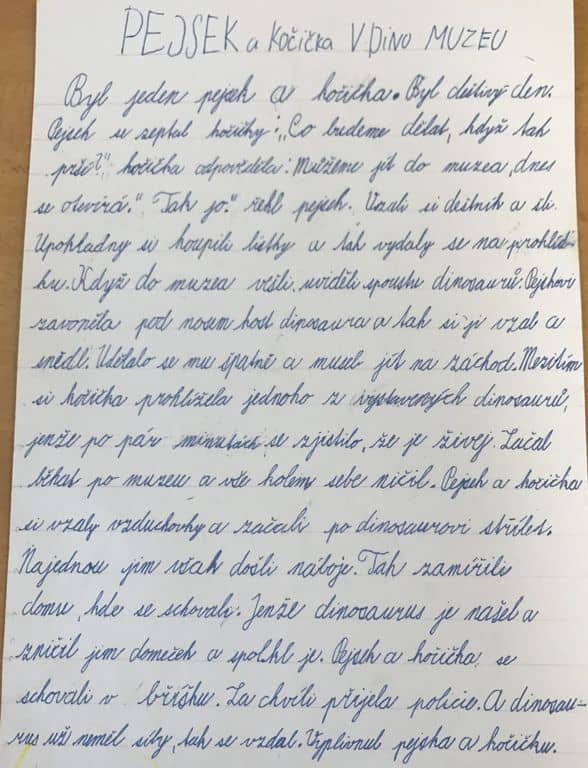 PEJSEK a Kočička V DINO MUZEU
Byl jeden pejsek a kočička. Byl deštivý den.
Pejsek se zeptal kočičky: „Co budeme dělat, když tak
prší?" kočička odpověděla: Můžeme jít do muzea, dnes
se otevírá." Tak jo." řekl pejsek. Vzali si deštník a šli.
U pokladny si koupili lístky a tak vydaly se na prohlíd-
ku. Když do muzea vešli, uviděli spoustu dinosaurů. Pejskovi
zavoněla pod nosem kost dinosaura a tak si ji vzal a
snědl. Udělalo se mu špatně a musel jít na záchod. Mezitím
si kočička prohlížela jednoho z vystavených dinosaurů,
jenže po pár minutách se zjistilo, že je živej. Začal
běhat po muzeu a vše kolem sebe ničil. Pejsek a kočička
si vzaly vzduchovky a začali po dinosaurovi střílet.
Najednou jim však došli náboje. Tak zamířili
domu, kde se schovali. Jenže dinosaurus je našel a
zničil jim domeček a spolkl je. Pejsek a kočička se
schovali v bříšku. Za chvíli přijela policie. A dinosau-
rus už neměl síly, tak se vzdal. Vyplivnul pejska a kočičku.